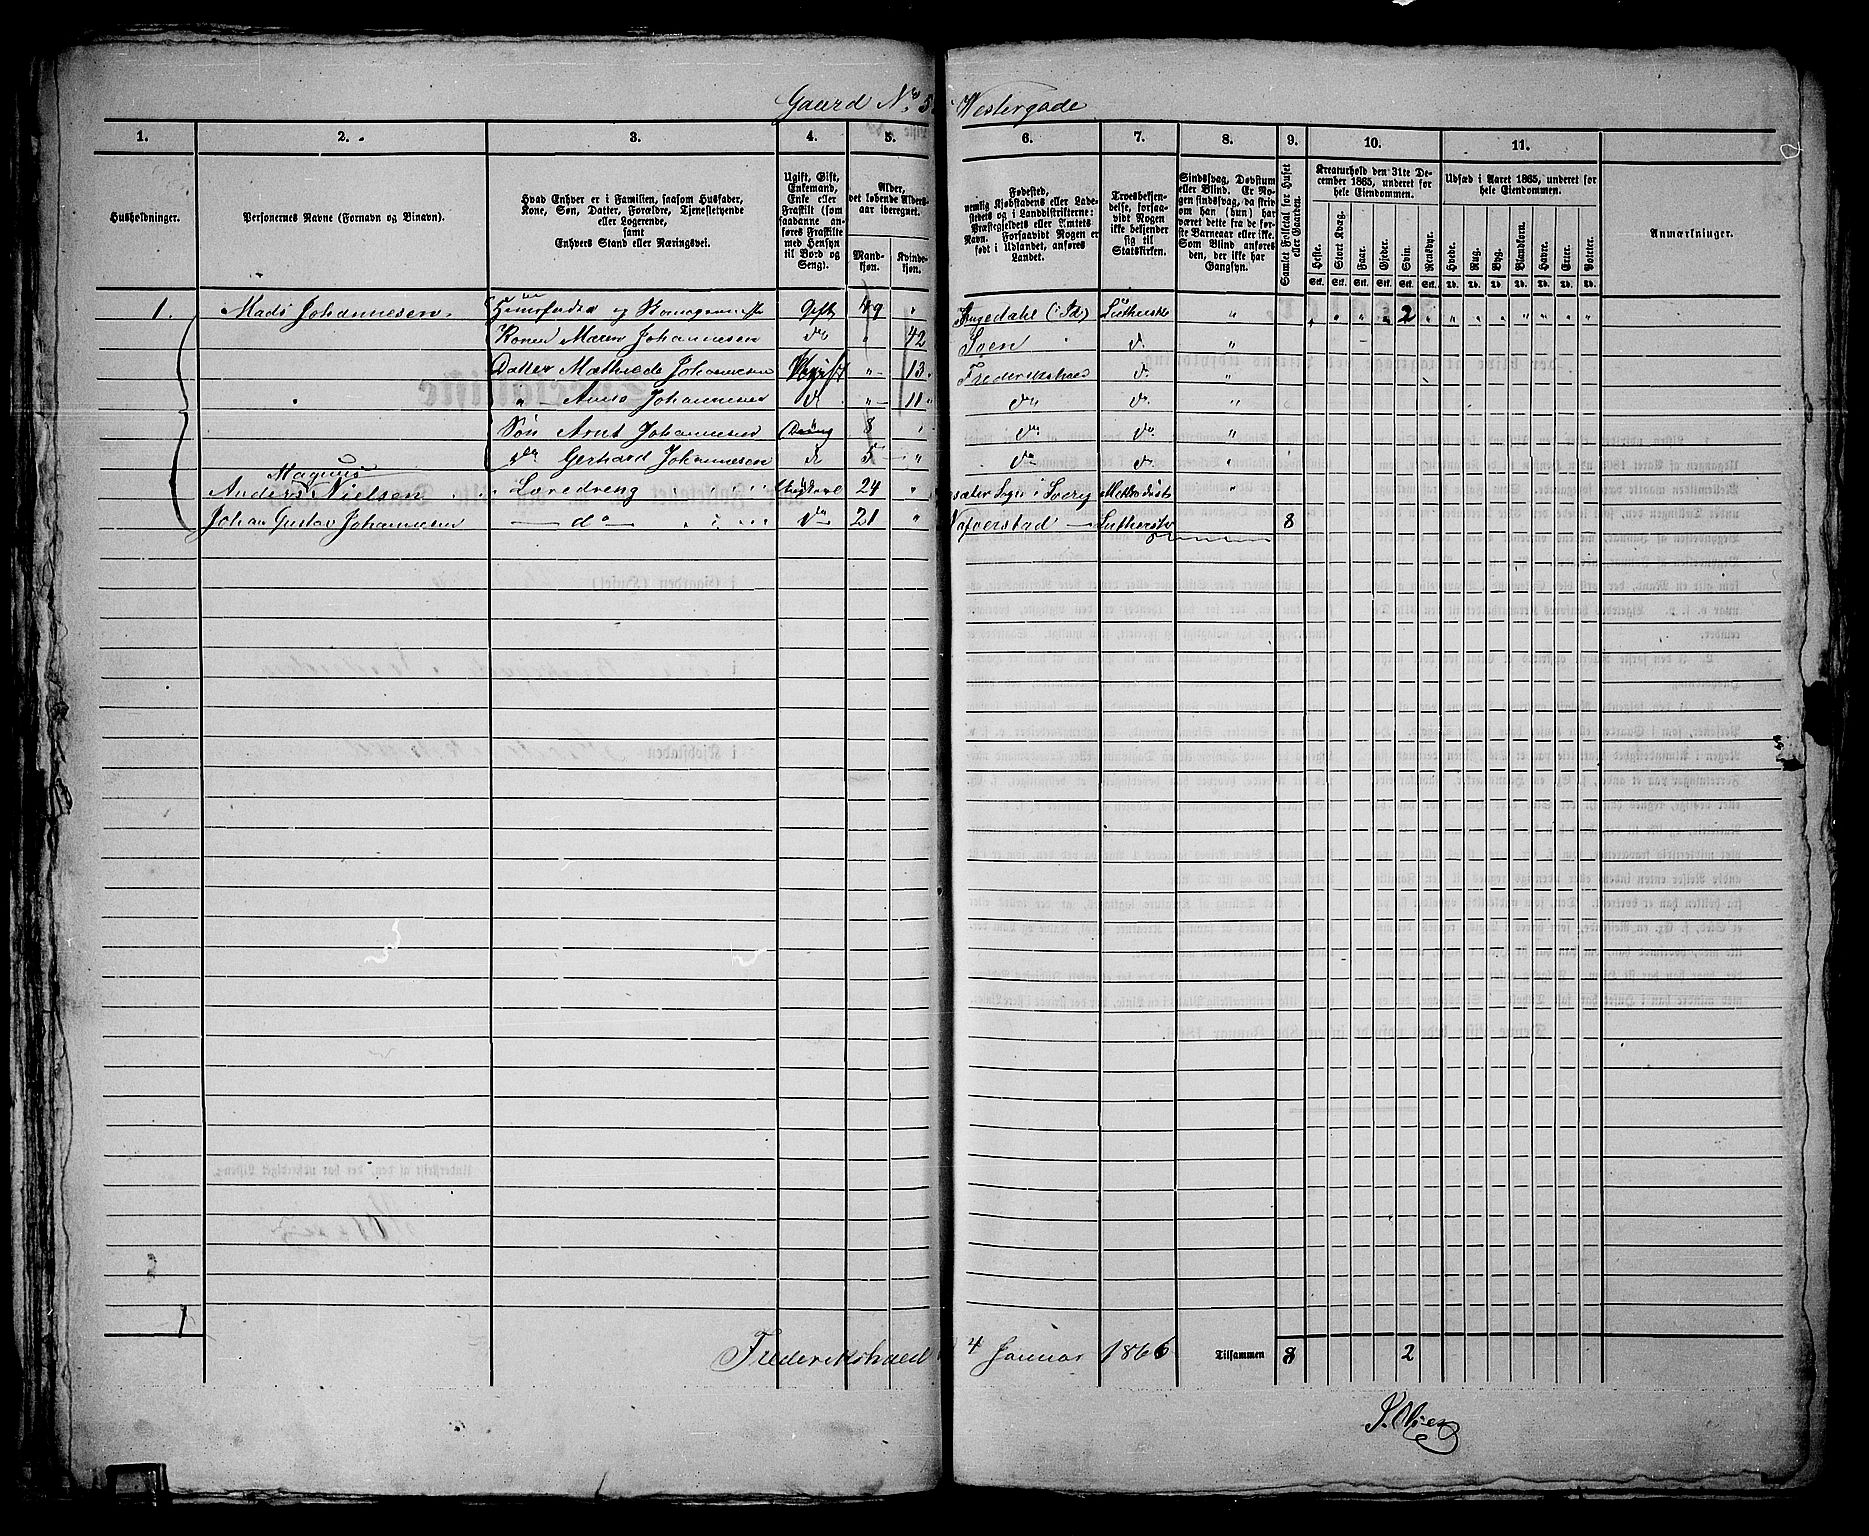 Gaard No. 5 Westergade
1. 2. 3. 4. 5. 6. 7. 8. 9. 10. 11.
Husholdninger.
Personernes Navne (Fornavn og Binavn).
Hvad Enhver er i Familien, saasom Husfader, Kone, Søn, Datter, Forældre, Tjenestetyende eller Logerende, samt Enhvers Stand eller Næringsvei.
Ugift, Gift, Enkemand, Enke eller Fraskilt (som saadanne anføres Fraskilte med Hensyn til Bord og Seng).
Alder, det løbende Alders-aar iberegnet.
Mandkjøn. Kvindekjøn.
Fødested, nemlig Kjøbstadens eller Ladestedets og i Landdistrikterne: Præstegjeldets eller Amtets Navn. Forsaavidt Nogen er født i Udlandet, anføres Landet.
Troesbekjendelse, forsaavidt Nogen ikke bekjender sig til Statskirken.
Sindssvag, Døvstum eller Blind. Er Nogen sindssvag, da skrives om han (hun) har været dette fra de første Barneaar eller ikke. Som Blind anføres den, der ikke har Gangsyn.
Samlet Folketal for Huset eller Gaarden.
Kreaturhold den 31te December 1865, underet for hele Eiendommen.
Heste. Stort Kvæg. Faar. Gjeder. Svin. Rensdyr.
Udsæd i Aaret 1865, underet for hele Eiendommen.
Hvede. Rug. Byg. Blandkorn. Havre. Erter. Poteter.
Anmærkninger.
1. Mads Johannesen Gift 49 " (Id) Luthersk " 2
Kone Maren Johannesen do " 42 Soen d.
Datter Mathilde Johannesen Ugift " 13 Frederikshald d. "
" Anna Johannesen d " 11 do d. "
Søn Arnt Johannesen 8 " do do "
do Gerhard Johannesen d 5 " do d. "
Magnus
Anders Nielsen Løredreng Ungkarl 24 " Sogn i Sverig Methodist "
Johan Gustav Johannesen do do 21 " Luthersk 8
1
Frederikshald 4 Januar 1866 Tilsammen 8 2